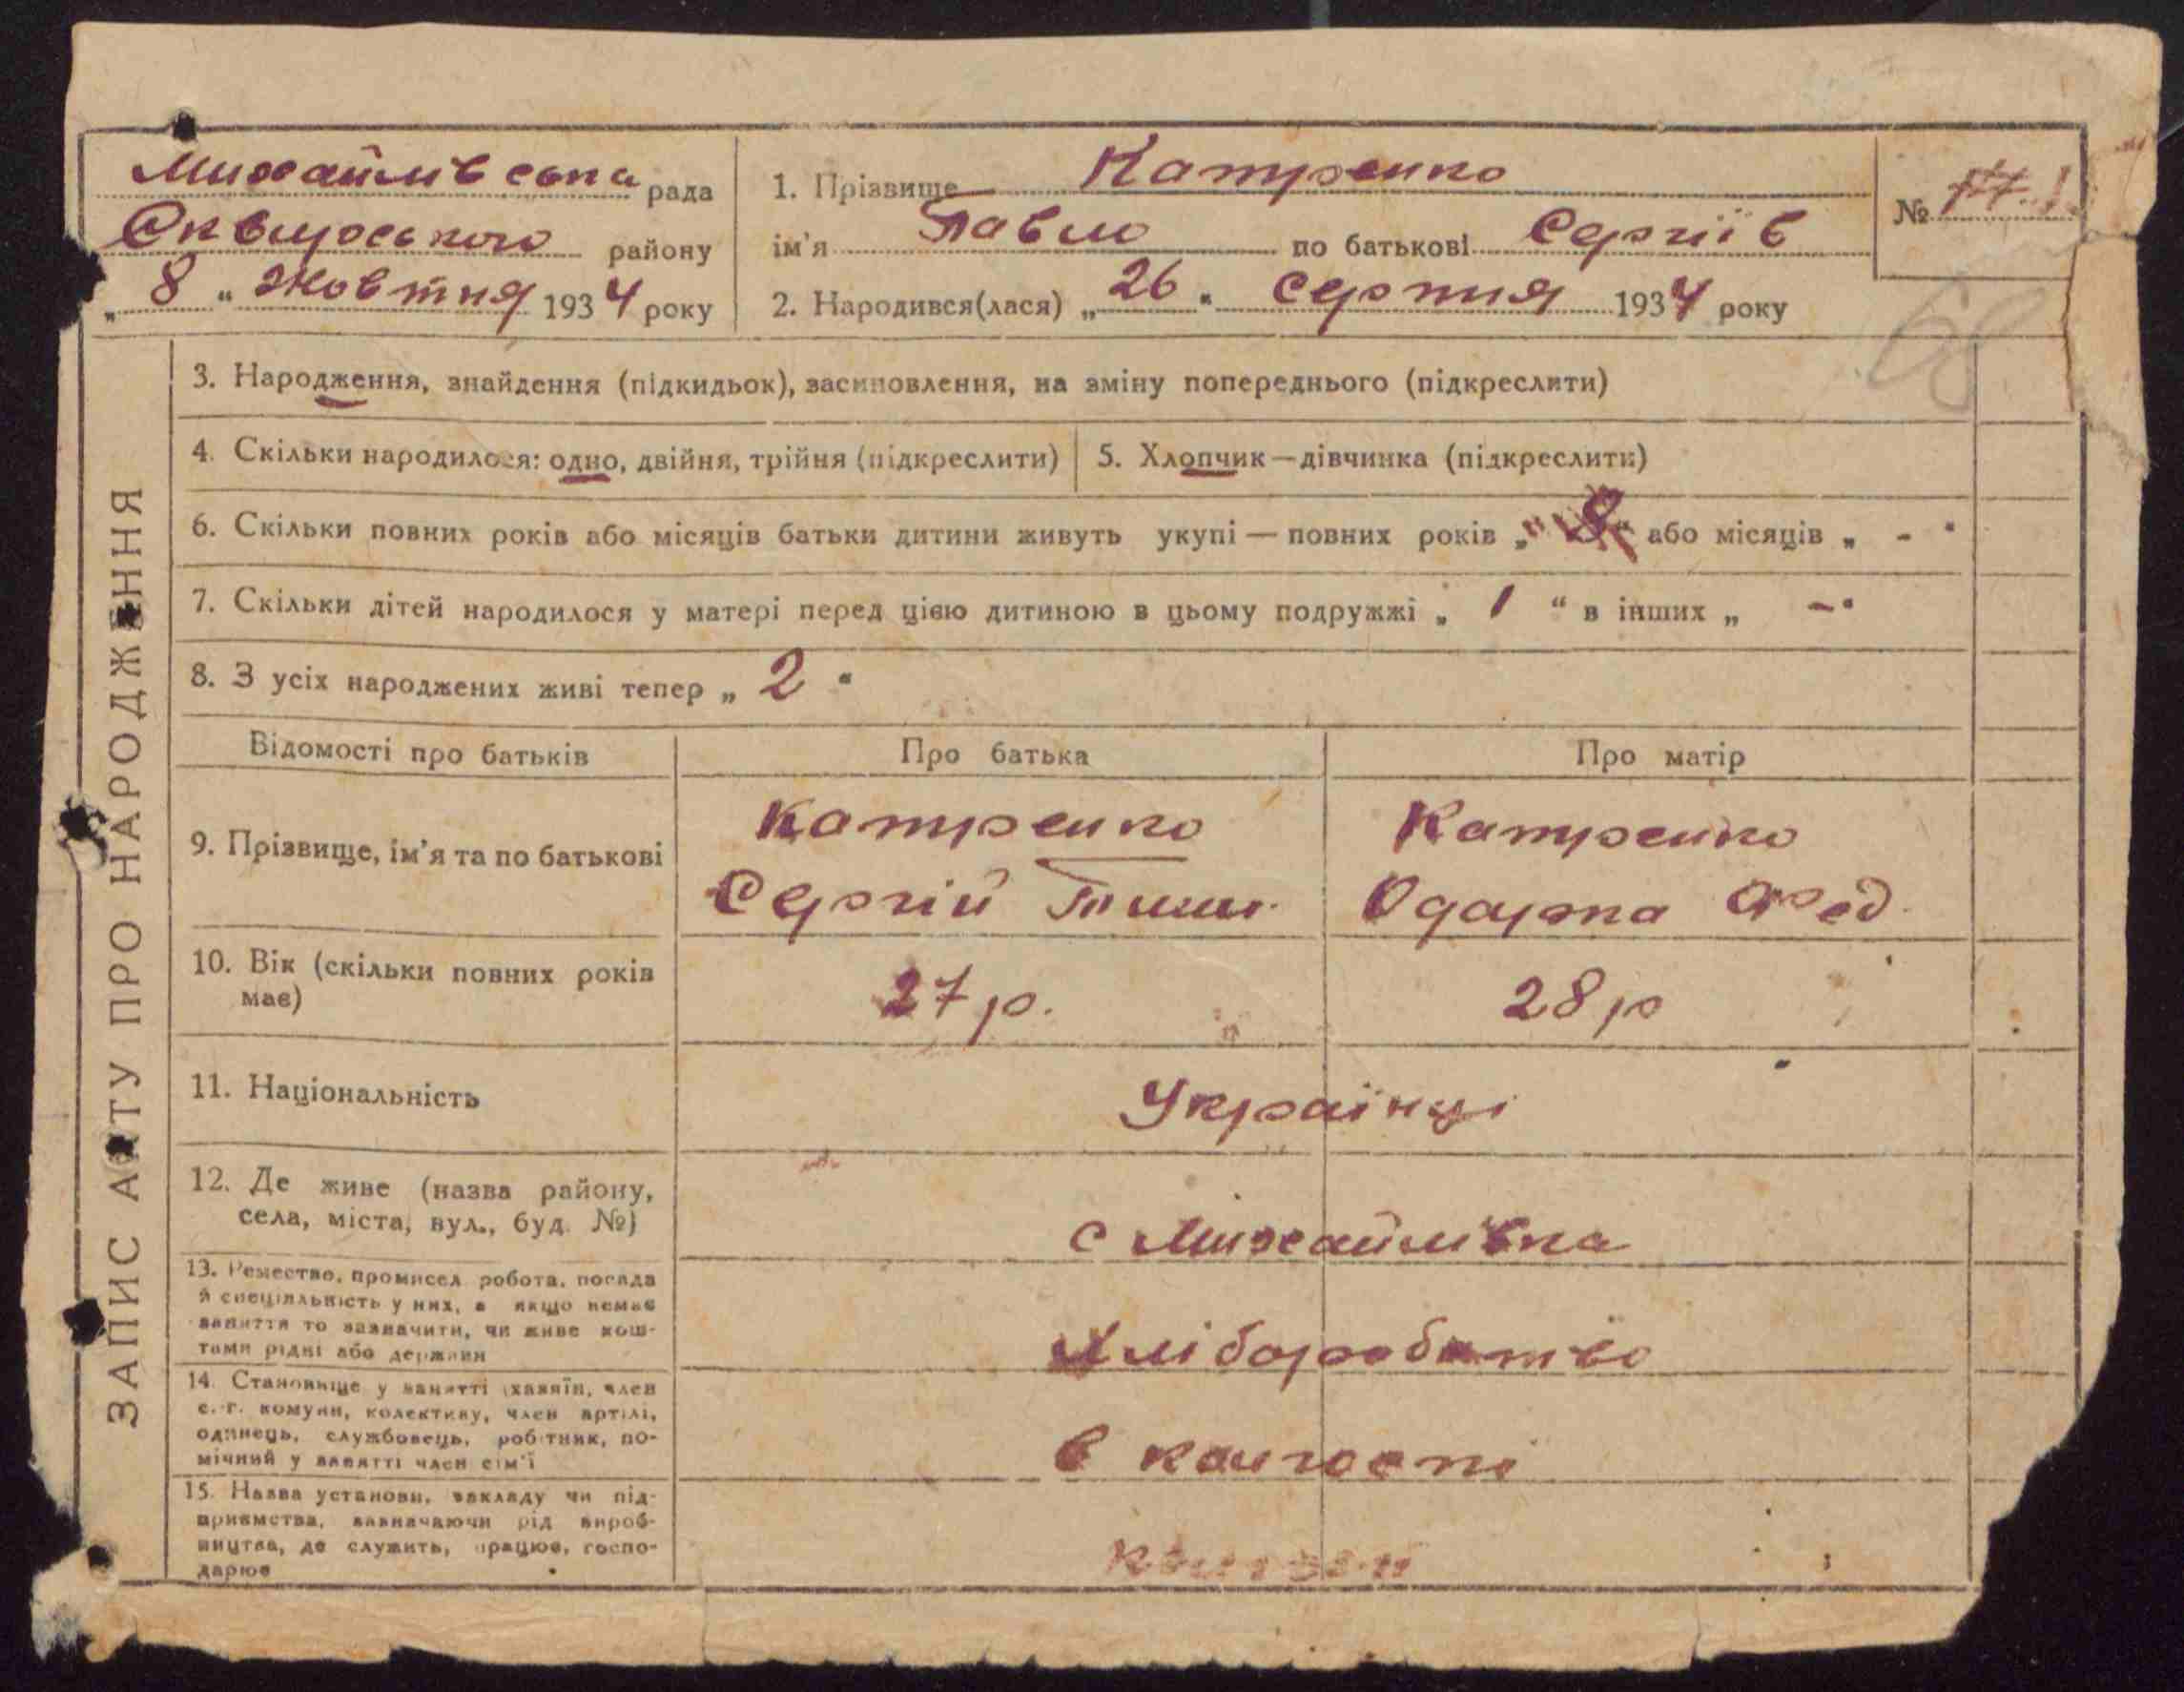 Михайлівська рада
Сквирського району
„ 8 “ Жовтня 1934 року
1. Прізвище Катренко
ім'я Павло по батькові Сергіїв
2. Народився(лася) „ 26 “ Серпня 1934 року
№
68
ЗАПИС АКТУ ПРО НАРОДЖЕННЯ
3. Народження, знайдення (підкидьок), засиновлення, на зміну попереднього (підкреслити)
4. Скільки народилося: одно, двійня, трійня (підкреслити)
5. Хлопчик — дівчинка (підкреслити)
6. Скільки повних років або місяців батьки дитини живуть укупі — повних років „ “ або місяців „ - “
7. Скільки дітей народилося у матері перед цією дитиною в цьому подружжі „ 1 “ в інших „ - “
8. З усіх народжених живі тепер „ 2 “
Відомості про батьків
Про батька
Про матір
9. Прізвище, ім'я та по батькові
Катренко
Сергій Тим.
Катренко
Одарка Фед.
10. Вік (скільки повних років
має)
27 р.
28 р
11. Національність
Українці
12. Де живе (назва району,
села, міста, вул., буд. №)
с Михайлівка
13. Ремество, промисел робота, посада
й спеціяльність у них, а якщо немає
заняття то зазначити, чи живе кош-
тами рідні або держави
Хліборобство
14. Становище у занятті (хазяїн, член
с.-г. комуни, колективу, член артілі,
одинець, службовець, робітник, по-
мічний у занятті член сім'ї
в колгоспі
15. Назва установи, закладу чи під-
приємства, зазначаючи рід вироб-
ництва, де служить, працює, госпо-
дарює